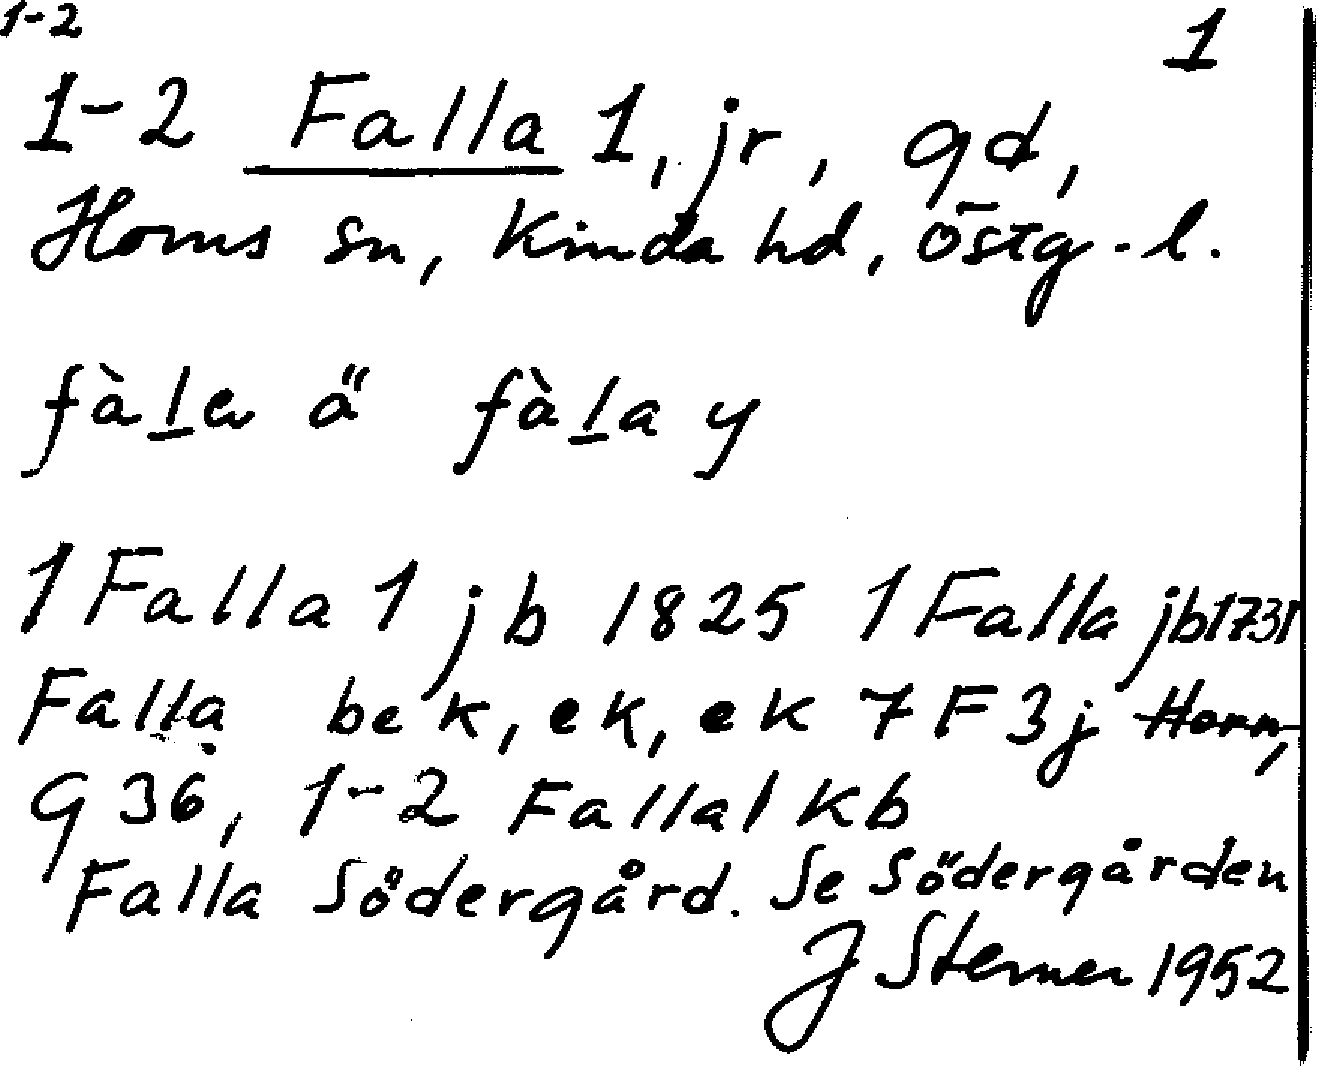 1-2 1
1-2 Falla 1, jr, gd,
Horns sn, Kinda hd, Östg.l.
fàla ä fàla y
1 Falla 1 jb 1825 1 Falla jb 1731
Falla bek, ek, ek 7F3j Horn,
G 36, 1-2 Falla 1 Kb
Falla Södergård. Se Södergården
J Sterner 1952